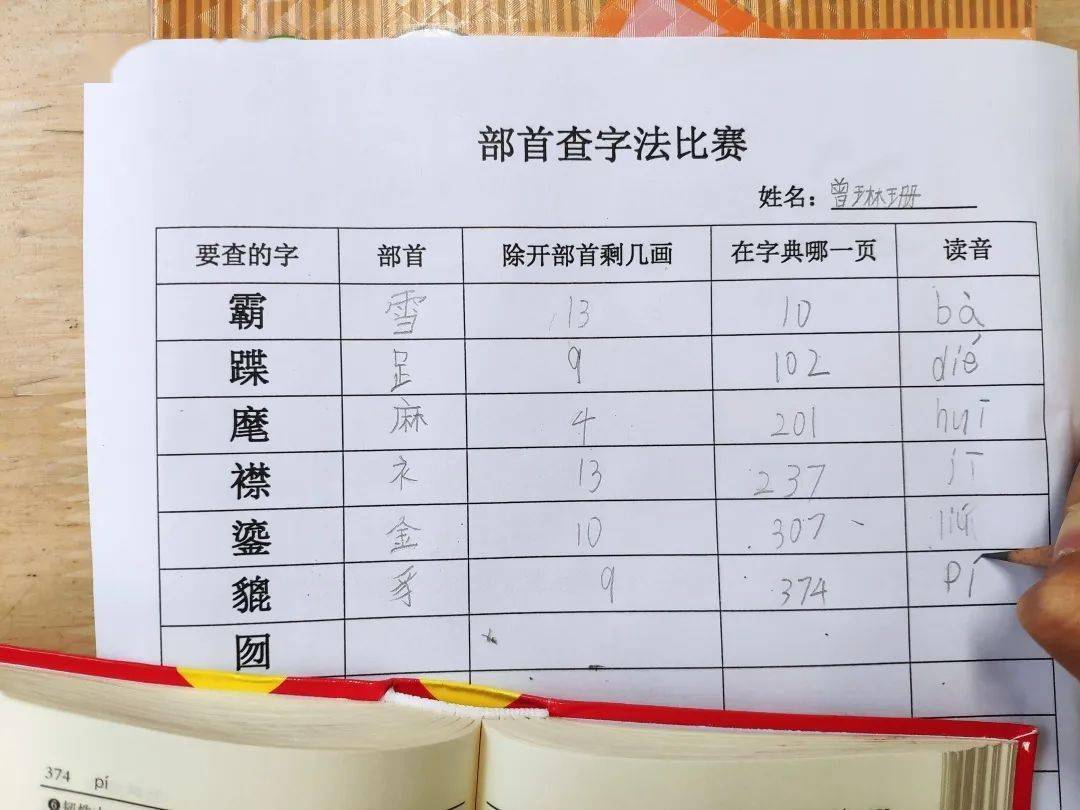 部首查字法比赛
姓名：曾琳珊
要查的字 部首 除开部首剩几画 在字典哪一页 读音
霸 雪 13 10 bà
蹀 𧾷 9 102 dié
麾 麻 4 201 huī
襟 衤 13 237 jī
鎏 金 10 307 liú
貔 豸 9 374 pí
囫
374 pí